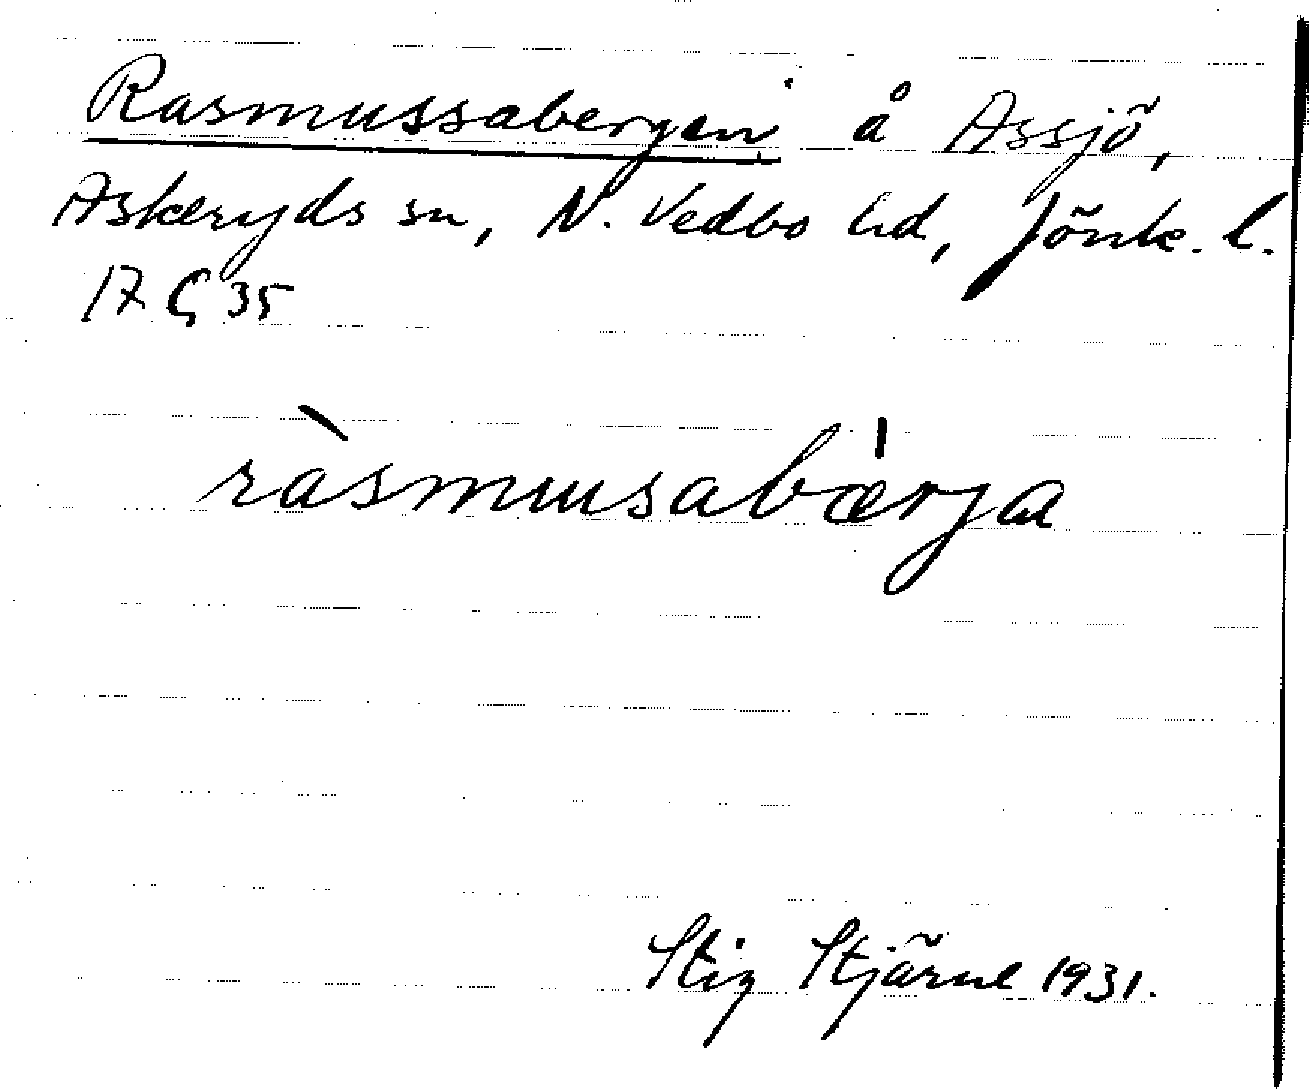 Rasmussabergen å Assjö,
Askeryds sn, N. Vedbo hd, Jönk. l.
17 G 35
ràsmusabærja
Stig Stjärne 1931.